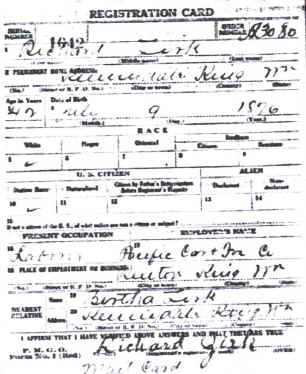 REGISTRATION CARD
SERIAL NUMBER 1642 ORDER NUMBER
Richard Zirk
2 PERMANENT HOME ADDRESS:
Kennydale King Wn
(No.) (Street or R. F. D. No.) (City or town) (County) (State)
Age in Years Date of Birth
42 9 1876
(Month.) (Day.) (Year.)
RACE
White Negro Oriental Indian
Citizen Noncitizen
5 6 7 8 9
U. S. CITIZEN ALIEN
Native Born Naturalized Citizen by Father's Naturalization Before Registrant's Majority Declarant Non-declarant
10 11 12 13 14
15
If not a citizen of the U. S., of what nation are you a citizen or subject?
PRESENT OCCUPATION EMPLOYER'S NAME
Pacific Car &
18 PLACE OF EMPLOYMENT OR BUSINESS:
Renton King Wn
(No.) (Street or R. F. D. No.) (City or town) (County) (State)
NEAREST RELATIVE
Name 19 Bertha Zirk
Address 20 Kennydale King Wn
(No.) (Street or R. F. D. No.) (City or town) (County) (State)
I AFFIRM THAT I HAVE VERIFIED ABOVE ANSWERS AND THAT THEY ARE TRUE
P. M. G. O.
Form No. 1 (Red)
Richard Zirk
Mail Card